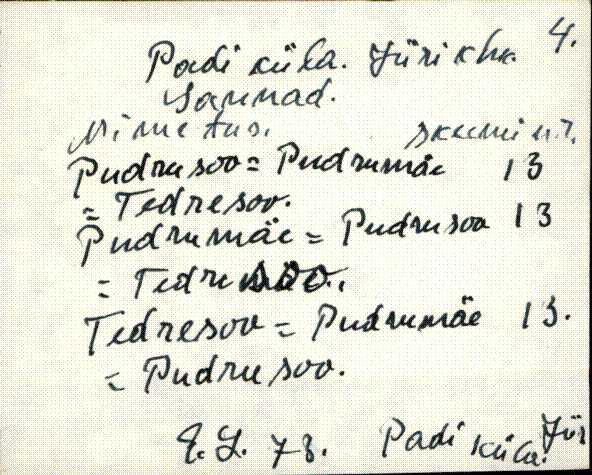 4.
Padi küla. Jüri khk.
Sannad.
Nimetus. skeemi nr.
Pudrusoo = Pudrumäe 13
= Tedresoo.
Pudrumäe = Pudrusoo 13
= Tedresoo.
Tedresoo = Pudrumäe 13.
= Pudrusoo.
E. L. 78. Padi küla. Jür